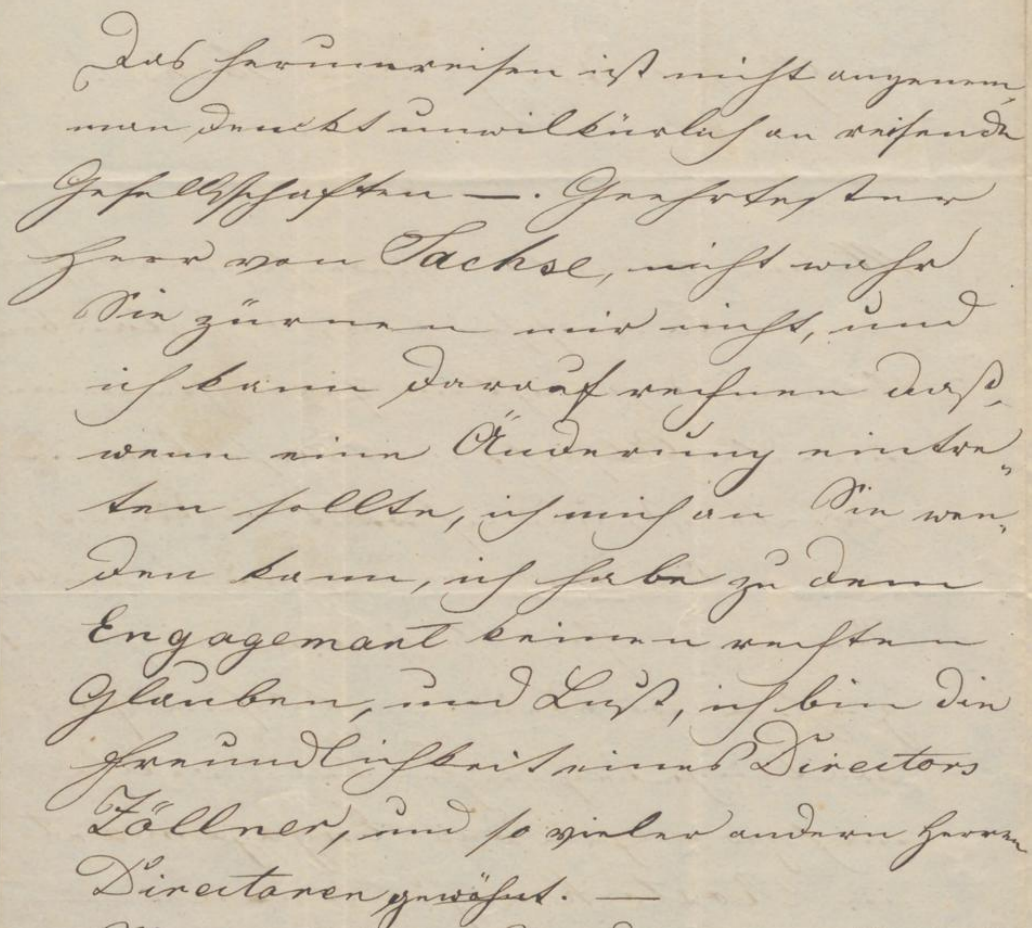 Das herumreisen ist nicht angenem,
man denckt unwilkürlich an reisende
Gesellschaften —. Geehrtester
Herr von Sachse, nicht wahr
Sie zürnen mir nicht, und
ich kann darauf rechnen daß,
wenn eine Änderung eintre„
ten sollte, ich mich an Sie wen„
den kann, ich habe zu dem
Engagemant keinen rechten
Glauben, und Lust, ich bin die
Freundlichkeit eines Directors
Zöllner, und so vieler andern Herren
Directoren gewöhnt. —